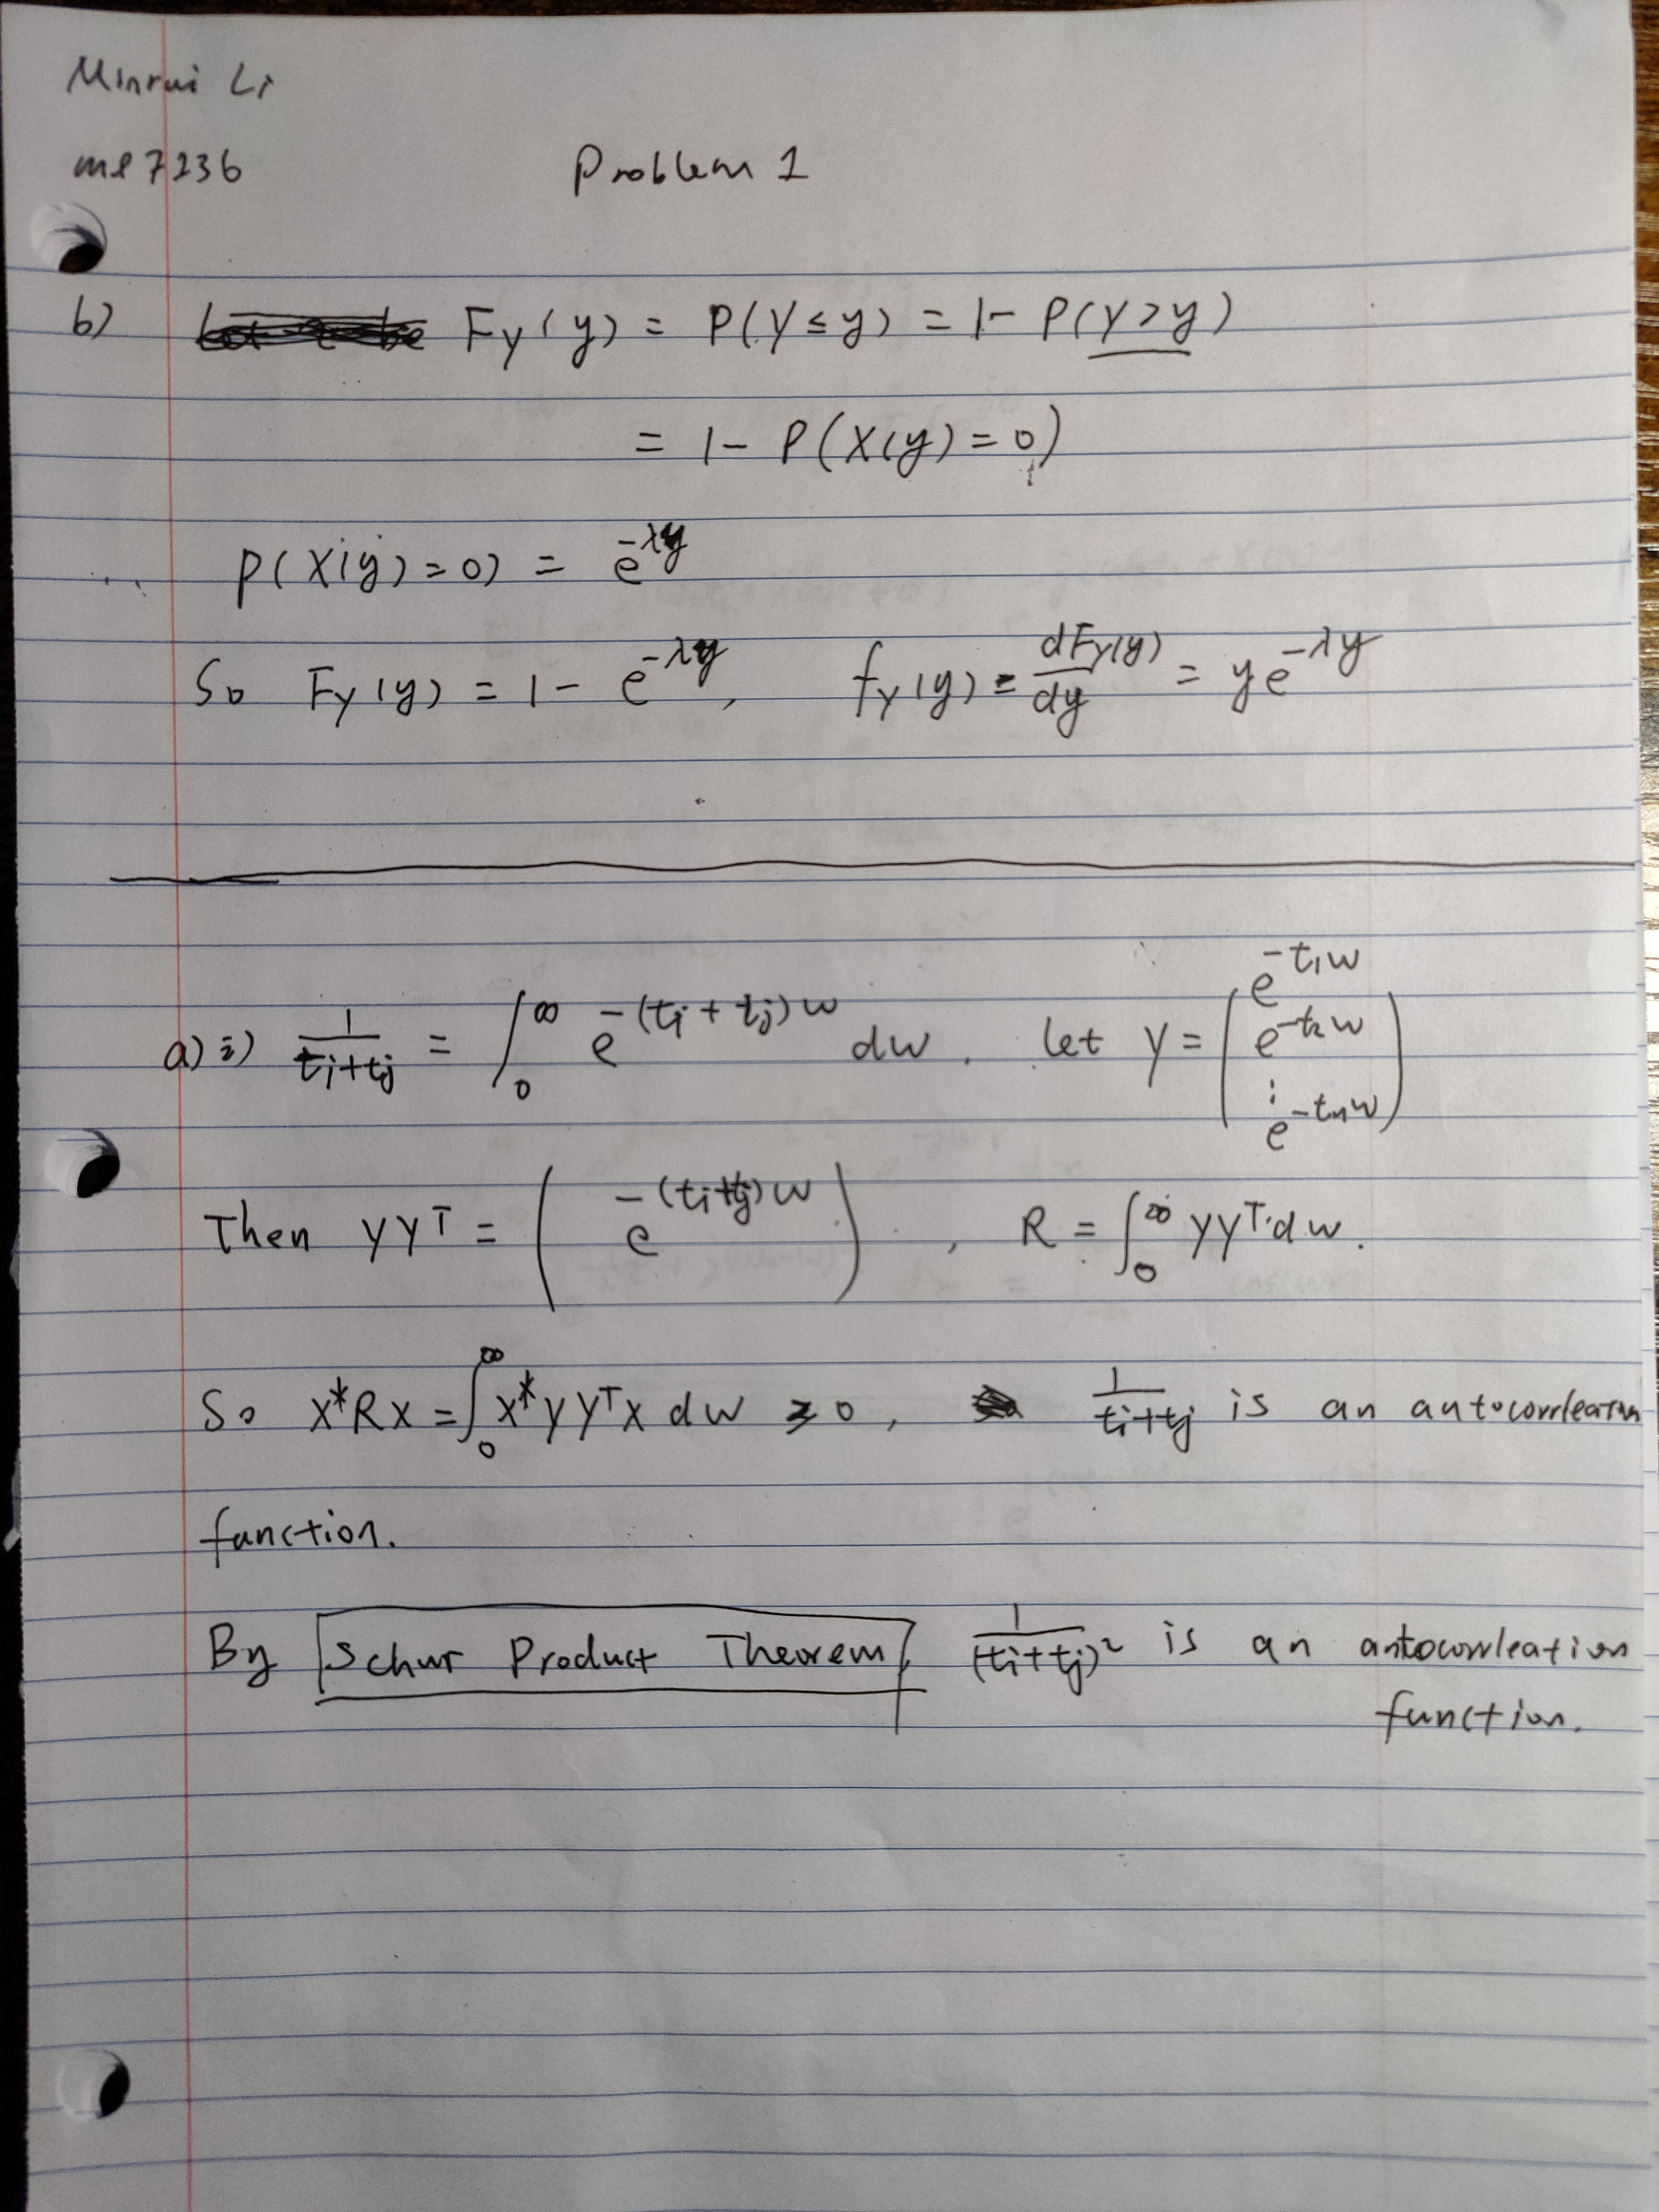 Minrui Li
ml7236
Problem 1
b) F_Y(y) = P(Y ≤ y) = 1 - P(Y > y)
= 1 - P(X(y) = 0)
P(X(y) = 0) = e^{-λy}
So F_Y(y) = 1 - e^{-λy}, f_Y(y) = dF_Y(y)/dy = ye^{-λy}
a) i) 1/(t_i+t_j) = ∫_0^∞ e^{-(t_i+t_j)w} dw. let Y = (e^{-t_1w} e^{-t_2w} ⋮ e^{-t_nw})
Then YY^T = ( e^{-(t_i+t_j)w} ), R = ∫_0^∞ YY^T dw.
So X*RX = ∫_0^∞ X*YY^TX dw ≥ 0, 1/(t_i+t_j) is an autocorrleation
function.
By Schur Product Theorem, 1/(t_i+t_j)^2 is an autocorrleation
function.